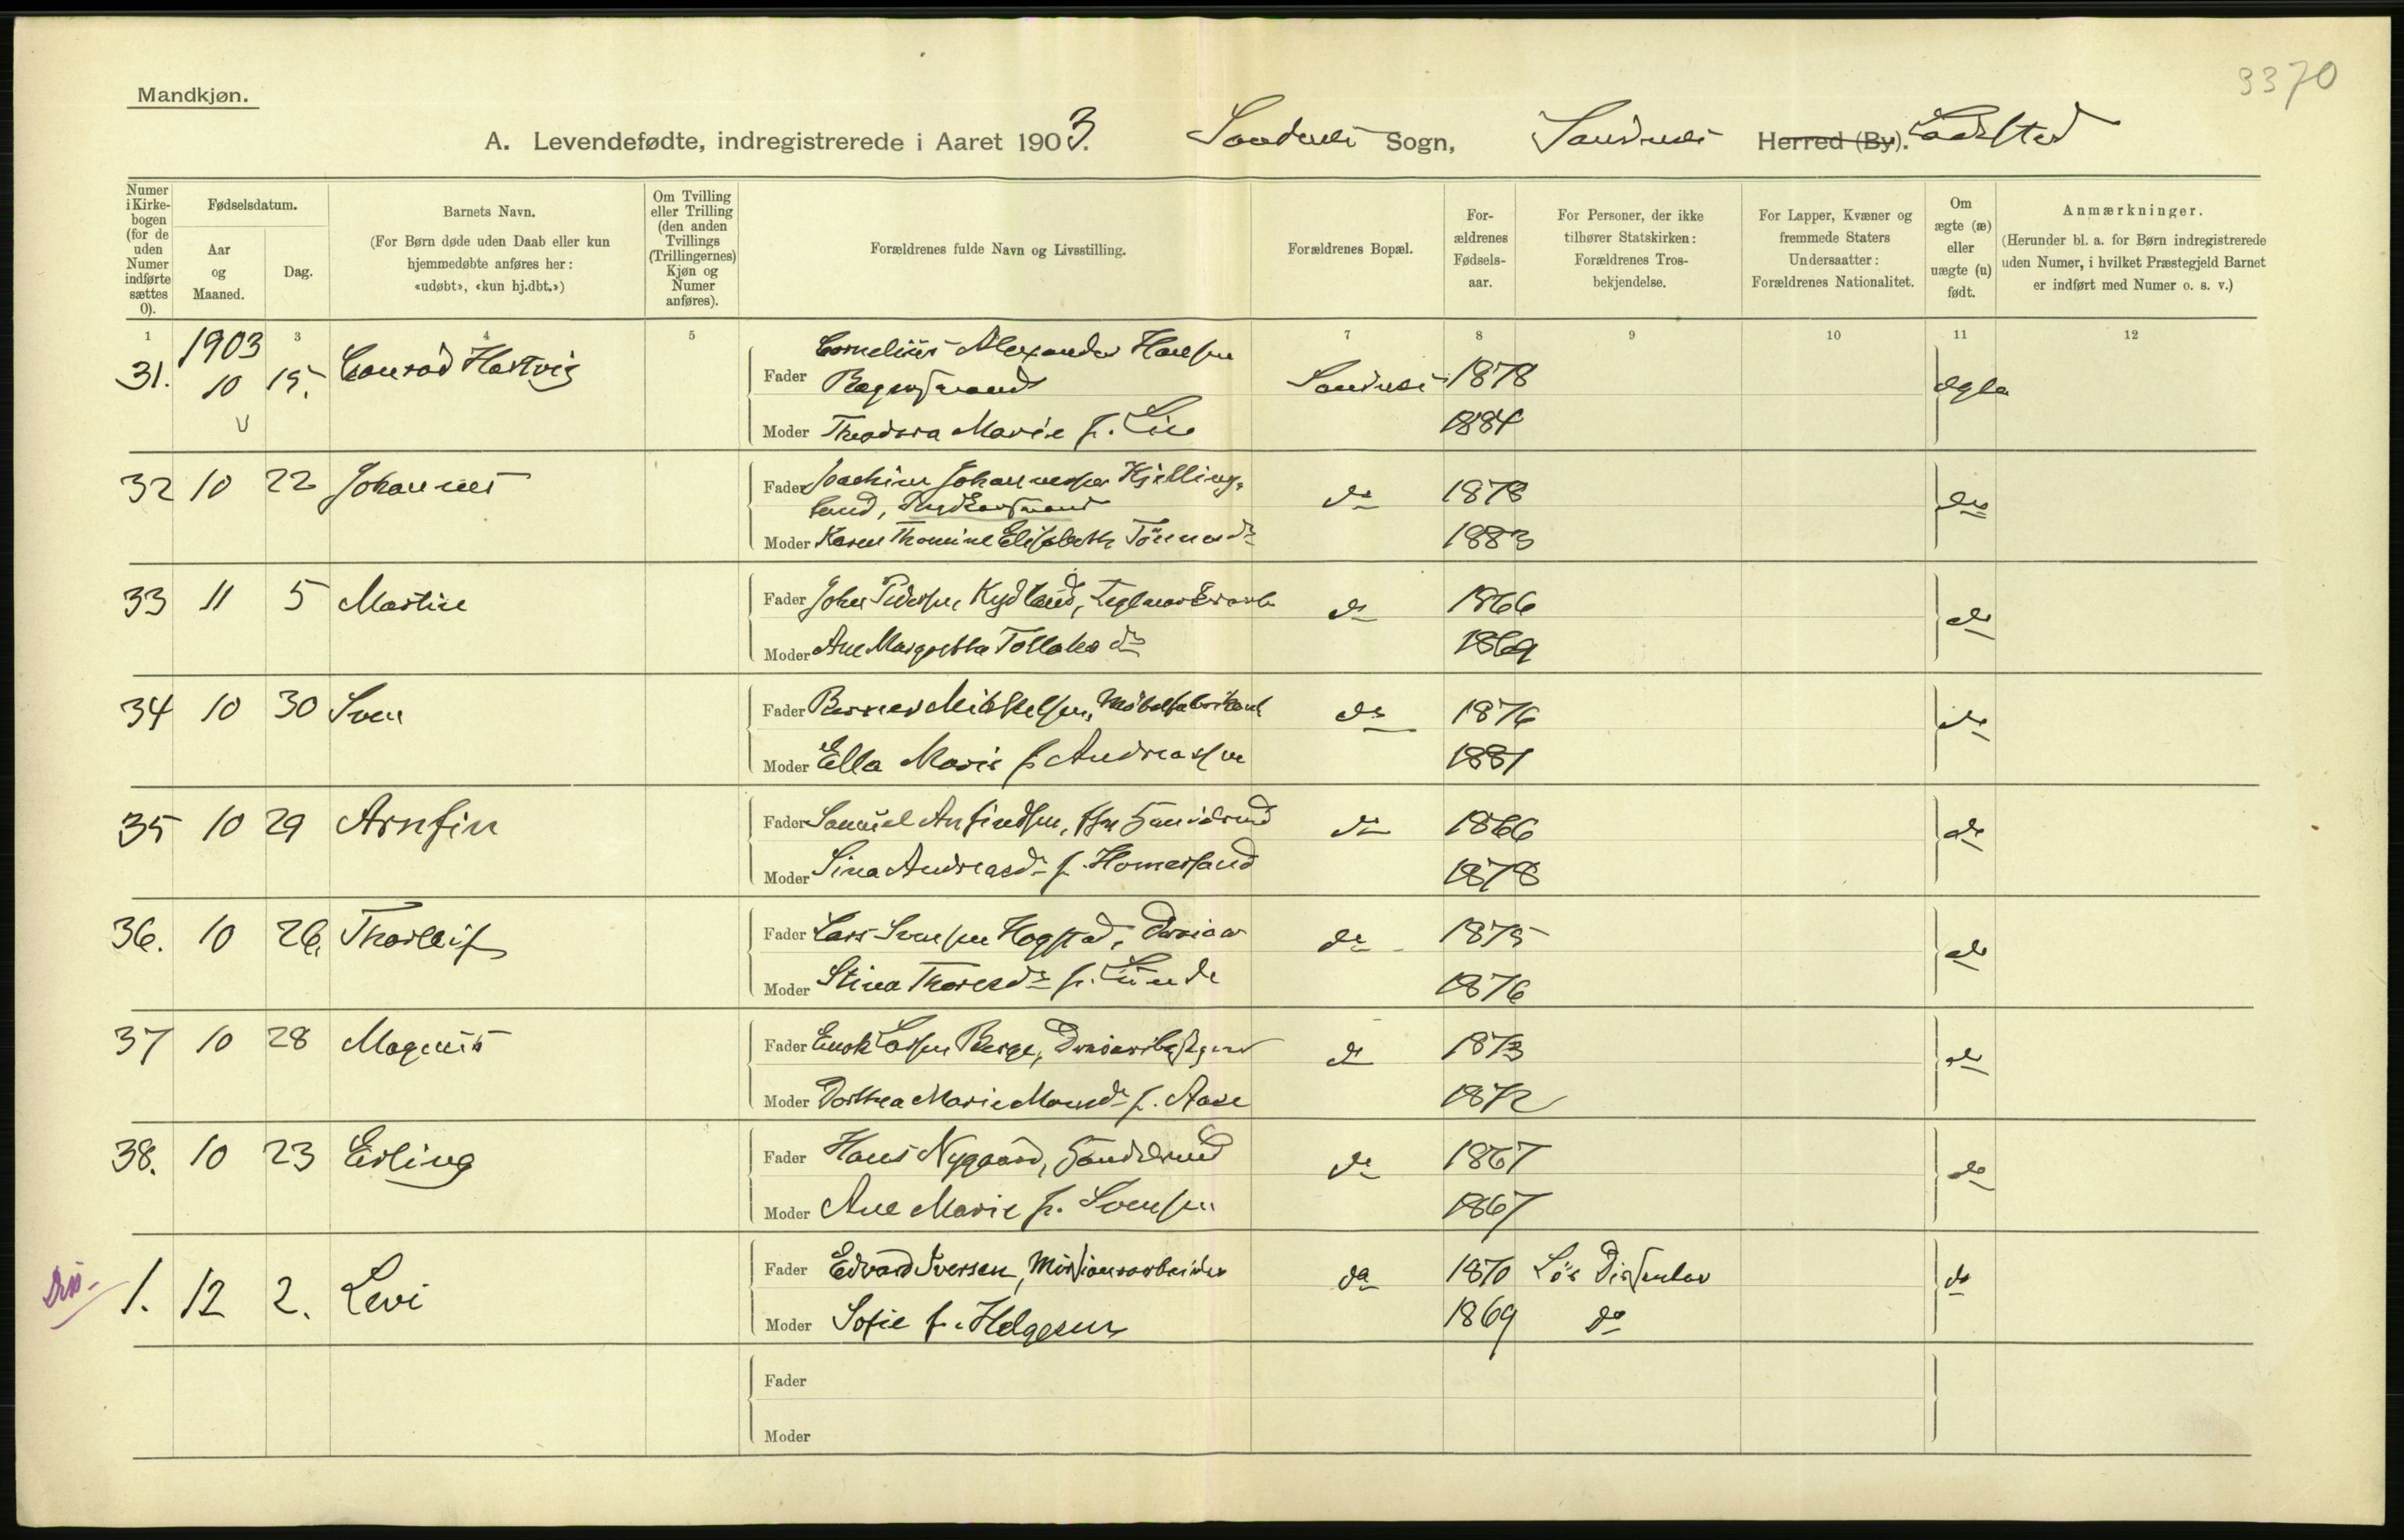 3370
Mandkjøn.
A. Levendefødte, indregistrerede i Aaret 1903. Sandnes Sogn, Sandnes Herred (By). Ladested
Numer i Kirke-bogen (for de uden Numer indførte sættes 0).
Fødselsdatum.
Aar og Maaned.
Dag.
Barnets Navn.
(For Børn døde uden Daab eller kun hjemmedøbte anføres her: «udøbt», «kun hj.dbt.»)
Om Tvilling eller Trilling (den anden Tvillings (Trillingernes) Kjøn og Numer anføres).
Forældrenes fulde Navn og Livsstilling.
Forældrenes Bopæl.
For-ældrenes Fødsels-aar.
For Personer, der ikke tilhører Statskirken: Forældrenes Tros-bekjendelse.
For Lapper, Kvæner og fremmede Staters Undersaatter: Forældrenes Nationalitet.
Om ægte (æ) eller uægte (u) født.
Anmærkninger.
(Herunder bl. a. for Børn indregistrerede uden Numer, i hvilket Præstegjeld Barnet er indført med Numer o. s. v.)
1 3 4 5 7 8 9 10 11 12
1903
31. 10 15. Conrad Hartvig Fader Cornelius Alexander Hansen
Sandnes 1878 ægte
v Moder Theodora Marie f. Lie 1884
32 10 22 Johannes Fader Joachim Johannessen Kjelling-
land, do 1878 do
Moder Karen Thomine Elisabeth Tönnesdr 1883
33 11 5 Martin Fader John Pedersen Kydland, do 1866 do
Moder Ane Margrethe Tollaksdr 1869
34 10 30 Sven Fader Berner Mikkelsen, Möbelfabrikant do 1876 do
Moder Ella Marie f Andreassen 1881
35 10 29 Arnfin Fader Samuel Anfindsen, do 1866 do
Moder Sina Andreasdr f. Homersand 1878
36. 10 26. Thorleif Fader Lars Svensen Hogstad, Dreier do 1875 do
Moder Stina Thoresdr f. Lunde 1876
37 10 28 Magnus Fader Enok Larsen Berge, do 1873 do
Moder Dorthea Marie f. Aase 1872
38. 10 23 Erling Fader Hans Nygaard, do 1867 do
Moder Ane Marie f. Svensen 1867
Dis. 1. 12 2. Levi Fader Edvard Iversen, Missionsarbeider do 1870 Lös Dissenter do
Moder Sofie f. Helgesen 1869 do
Fader
Moder